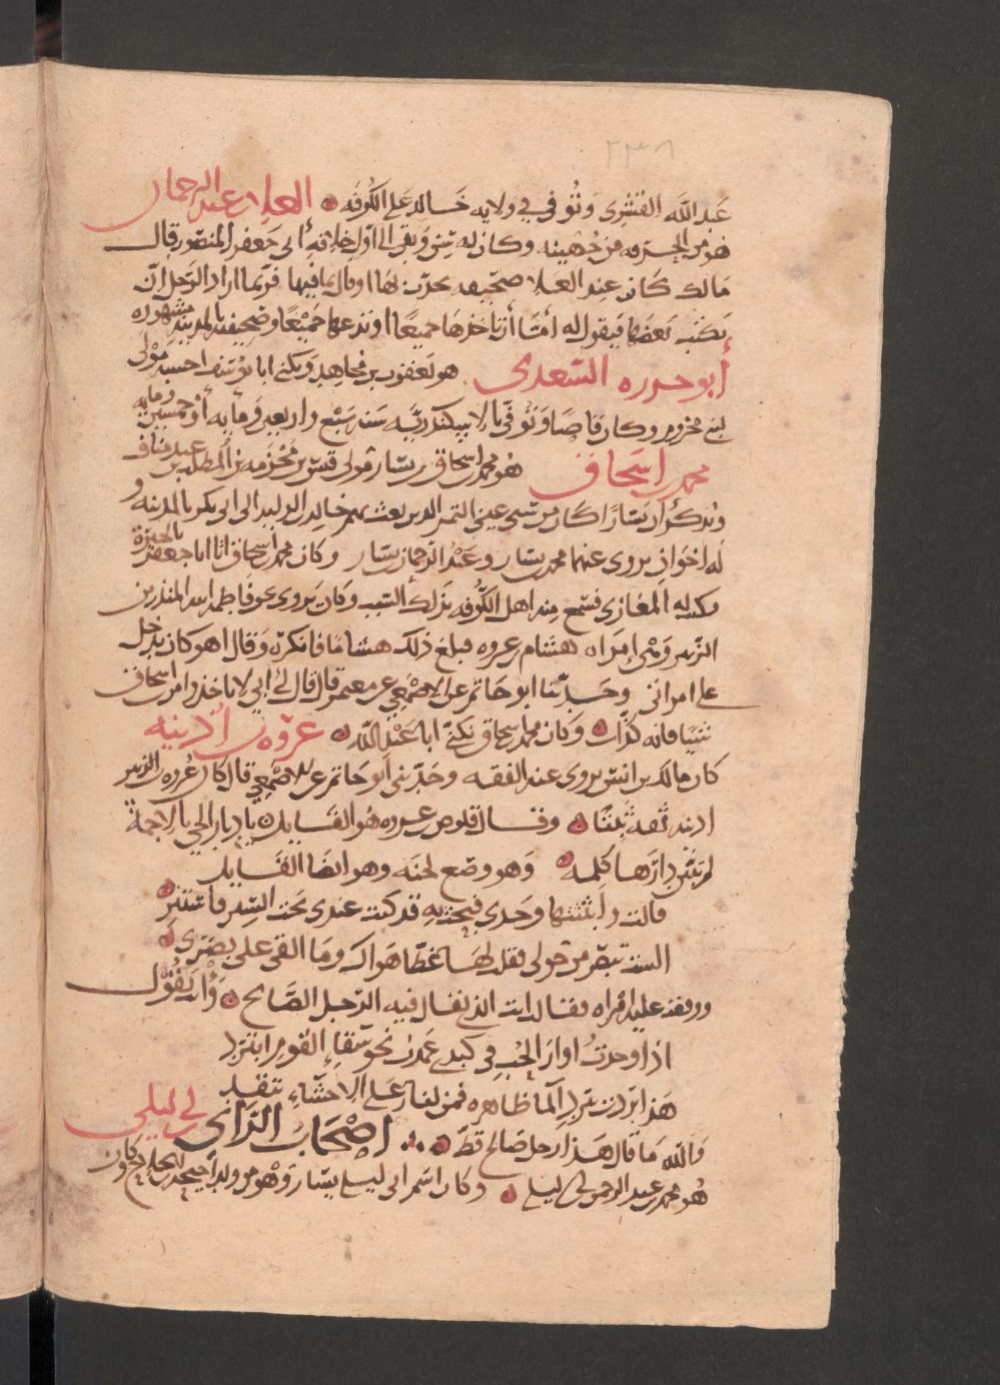 ٢٣٨
عبد الله القشري وتوفي في ولاية خالد على الكوفة العلا بن عبد الرحمان
هو من الحرقه من جهينه وكان له سن وبقى الى اول خلافة ابي جعفر المنصور قال
مالك كان عند العلا صحيفه يحدث بها اوقال بما فيها فربما اراد الرجل ان
يكتب بعضها فيقول له امّا أن تاخذها جميعًا او تدعها جميعًا وصحيفته بالمدينة مشهوره
أبو حرزه السعدي هو يعقوب بن مجاهد ويكنى ابا يوسف احسبه مولى
لبني مخزوم وكان قاصًا وتوفّي بالاسكندريّة سنة سبع واربعين ومايه أو خمسين ومايه
محمد بن اسحاق هو محمد بن اسحاق بن يسار مولى قيس بن مخرمه بن المطلب بن عبد مناف
ويذكر أن يسارًا كان من سبي عين التمر الذين بعث بهم خالد بن الوليد الى ابي بكر بالمدينه و
له اخوان يروى عنهما محمد بن يسار وعبد الرحمان بن يسار وكان محمد بن اسحاق اتا ابا جعفر بالحيرة
وكتب له المغازى فسمع منه اهل الكوفه بذلك السبب وكان يروى عن فاطمه ابنة المنذر بن
الزبير وهي إمراه هشام بن عروه فبلغ ذلك هشاما فانكره وقال اهو كان يدخل
على امراتي وحدثنا ابو حاتم عن الاصمعي عن معتمر قال قال لي أبي لا تاخذ من ابن اسحاق
شيئا فانه كذّاب وكان محمد بن اسحاق يكنى ابا عبد الله عروه بن أذينه
كان مالك بن انس يروى عنه الفقه وحدثنى ابو حاتم عن الاصمعي قال كان عروه بن
اذينه ثقه ثبتًا وقال قلوص عروه هو القايل يا ديار الحي بالاجمة
لم تبين دارها كلمه وهو وضع لحنه وهو ايضا القايل
قالت وابثثتها وجدي فبحت به قد كنت عندى تحت الستر فاستتر
الست تبصر من حولى فقلت لها غطّا هواك وما القى على بصري
ووقفت عليه امراه فقالت انت الذى يقال فيه الرجل الصالح وأنت يقول
اذا وجدت اوار الحب في كبدي عمدت نحو سقاء القوم ابترد
هذا بردت ببرد الما ظاهره فمن لنار على الاحشاء تتقد
والله ما قال هذا رجل صالح قط اصحاب الرأى ابن ابي ليلى
هو محمد بن عبد الرحمن بن ابي ليلى وكان اسم ابي ليلى يسار وهو من ولد احيحه بن الجلاح وكان